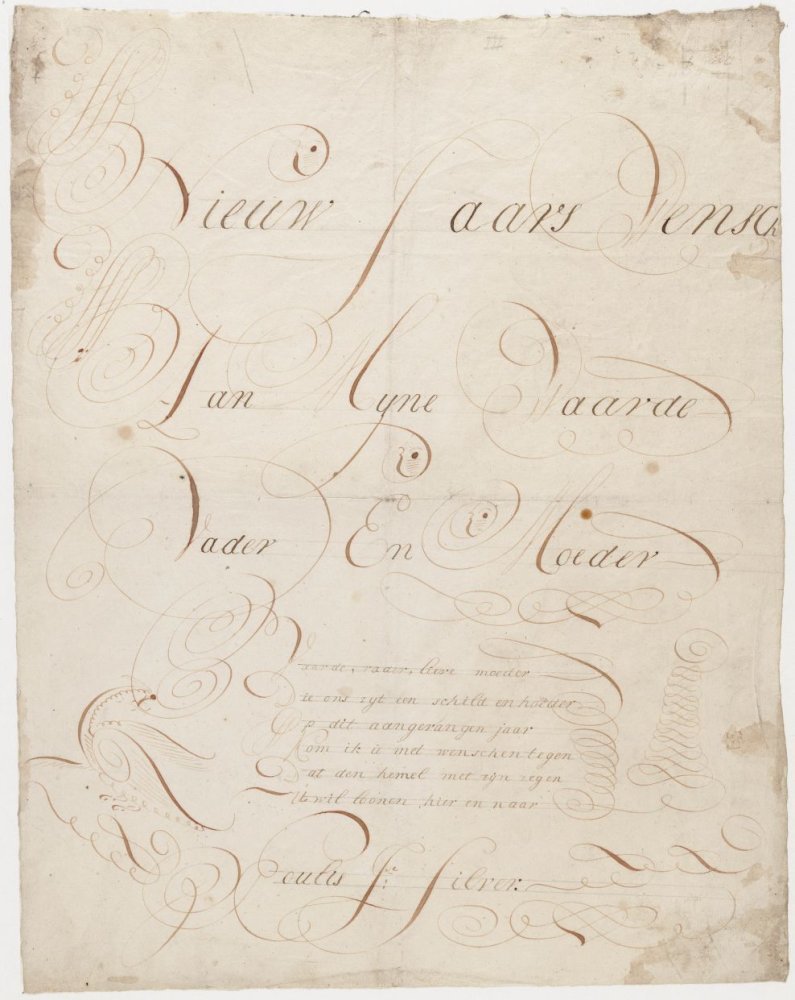 Nieuw Jaars Wensch
Aan Myne Waarde
Vader En Moeder
Waarde, vader, lieve moeder
Die ons zyt een schild en hoeder
Op dit aangevangen jaar
Kom ik ú met wenschen tegen
Dat den hemel met zyn zegen
U wil loonen hier en naar
Silver